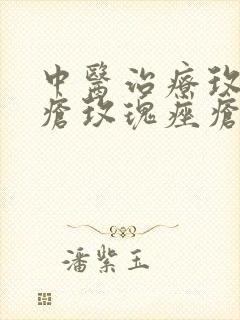 中醫治療玫
瘡玫瑰痤瘡
潘紫玉